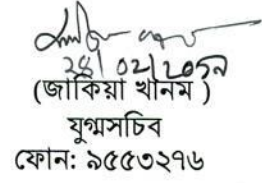 ২৪/০২/২০১৯
(জাকিয়া খানম )
যুগ্মসচিব
ফোন: ৯৫৫৩২৭৬